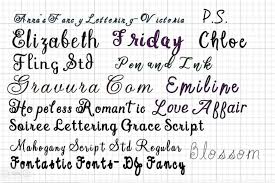 Anna's Fancy Lettering - Victoria P.S.
Elizabeth Friday Chloe
Fling Std Pen and Ink
Gravura Com Emiline
Hopeless Romantic Love Affair
Soiree Lettering Grace Script
Mahogany Script Std Regular Blossom
Fontastic Fonts - By Fancy